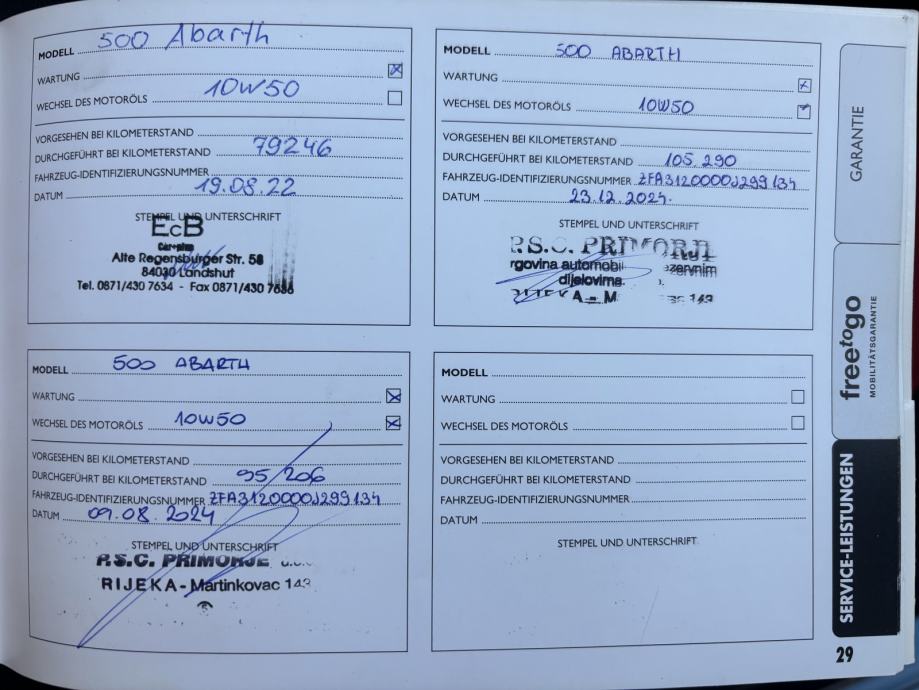 MODELL 500 Abarth
WARTUNG
WECHSEL DES MOTORÖLS 10W50
VORGESEHEN BEI KILOMETERSTAND
DURCHGEFÜHRT BEI KILOMETERSTAND 79246
FAHRZEUG-IDENTIFIZIERUNGSNUMMER
DATUM 19.08.22
STEMPEL UND UNTERSCHRIFT
EcB
Car-plus
Alte Regensburger Str. 58
84030 Landshut
Tel. 0871/430 7634 - Fax 0871/430 7636
MODELL 500 ABARTH
WARTUNG
WECHSEL DES MOTORÖLS 10W50
VORGESEHEN BEI KILOMETERSTAND
DURCHGEFÜHRT BEI KILOMETERSTAND 105.290
FAHRZEUG-IDENTIFIZIERUNGSNUMMER ZFA3120000J299134
DATUM 23.12.2024.
STEMPEL UND UNTERSCHRIFT
P.S.C. PRIMORJE
rgovina automobil ezervnim
dijelovima
MODELL 500 ABARTH
WARTUNG
WECHSEL DES MOTORÖLS 10W50
VORGESEHEN BEI KILOMETERSTAND
DURCHGEFÜHRT BEI KILOMETERSTAND 95206
FAHRZEUG-IDENTIFIZIERUNGSNUMMER ZFA3120000J299134
DATUM 09.08.2024
STEMPEL UND UNTERSCHRIFT
P.S.C. PRIMORJE
RIJEKA - Martinkovac 143
MODELL
WARTUNG
WECHSEL DES MOTORÖLS
VORGESEHEN BEI KILOMETERSTAND
DURCHGEFÜHRT BEI KILOMETERSTAND
FAHRZEUG-IDENTIFIZIERUNGSNUMMER
DATUM
STEMPEL UND UNTERSCHRIFT
GARANTIE
freetogo
MOBILITÄTSGARANTIE
SERVICE-LEISTUNGEN
29